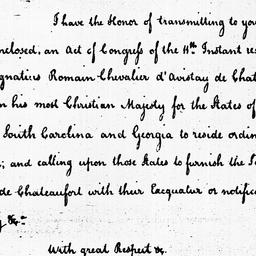 I have the Honor of transmitting to yo
nclosed, an Act of Congress of the 4th. Instant re
gnatius Romain Chevalier d'Avistay de Chat
n his most Christian Majesty for the States of
South Carolina and Georgia to reside ordin
; and calling upon those States to furnish the S
de Chateaufort with their Exequatur or notific
y &c=
With great Respect &c.